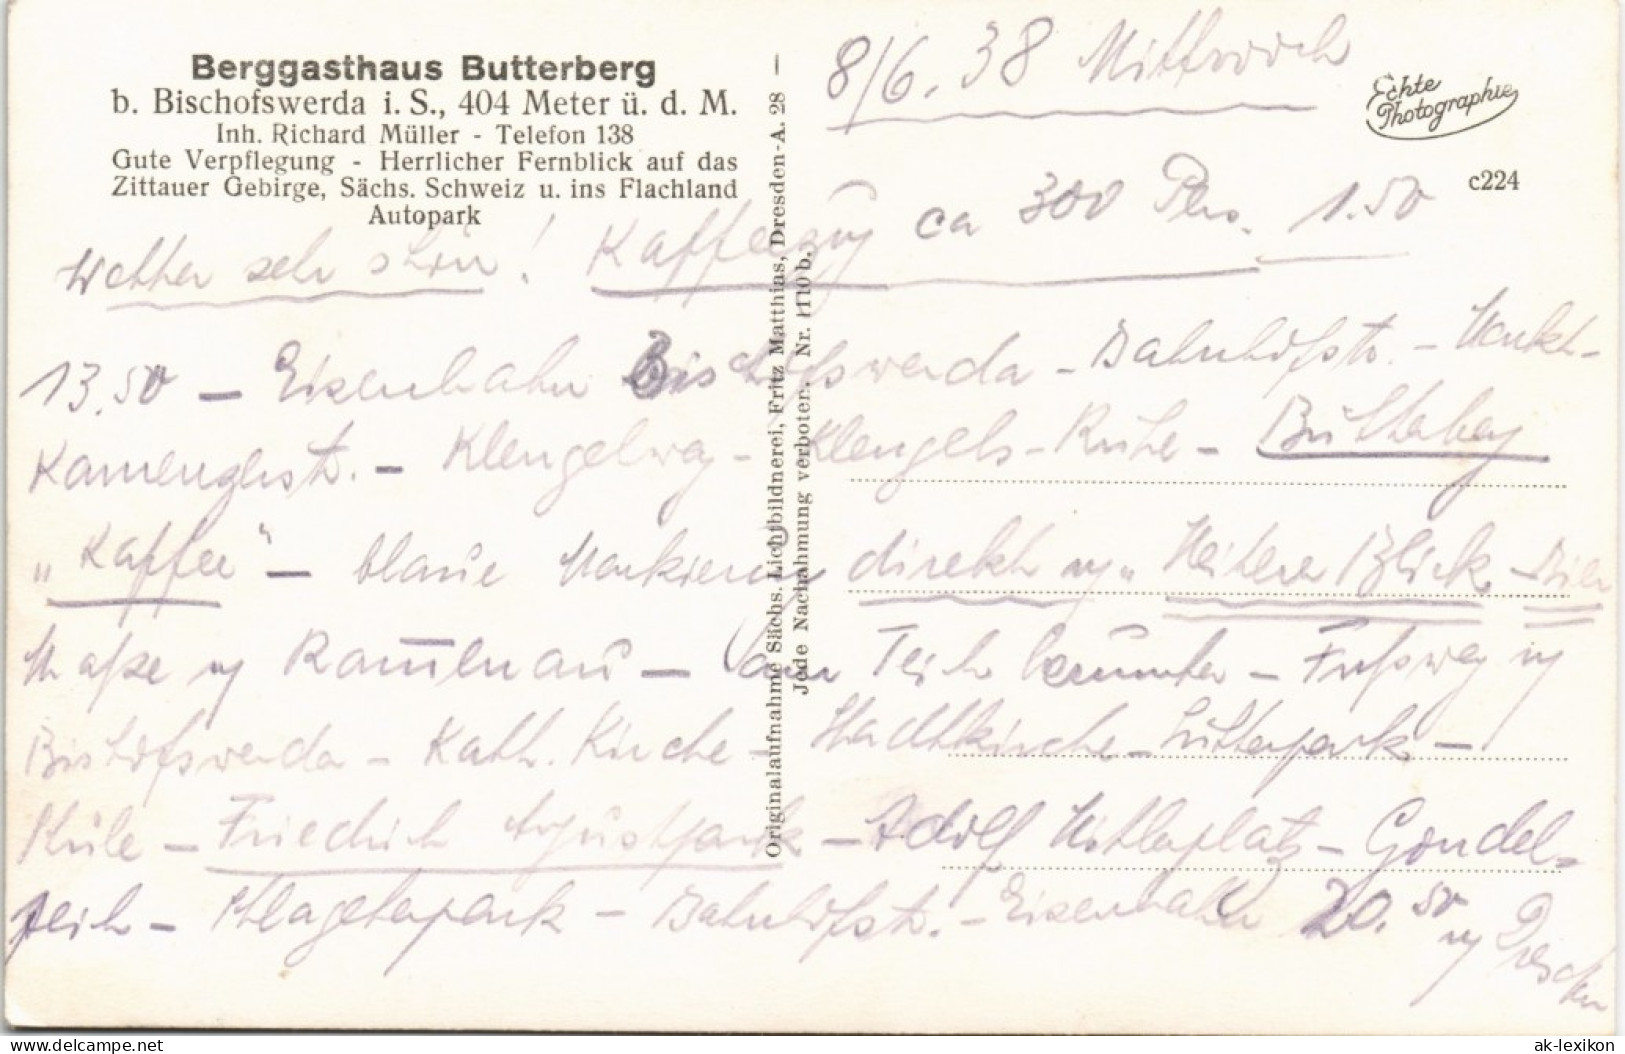 Berggasthaus Butterberg
b. Bischofswerda i. S., 404 Meter ü. d. M.
Inh. Richard Müller - Telefon 138
Gute Verpflegung - Herrlicher Fernblick auf das
Zittauer Gebirge, Sächs. Schweiz u. ins Flachland
Autopark
8/6. 38 Mittwoch
Echte
Photographie
c224
Wetter sehr schön! Kaffeezug ca 300 Pers. 1.50
13.50 – Eisenbahn Bischofswerda – Bahnhofstr. – Markt –
Kamenzerstr. – Klengelweg – Klengels-Ruhe – Butterberg
„Kaffee" – blaue Markierung direkt n „Heiterer Blick – Bier
Maße n Rammenau – Vom Teich herunter – Fußweg n
Bischofswerda – Kath. Kirche – Stadtkirche – Lutherpark –
Friedrich Augustpark – Adolf Hitlerplatz – Gondel-
teich – Schlageterpark – Bahnhofstr. – Eisenbahn 20.50
n Dresden
Originalaufnahme Sächs. Lichtbildnerei, Fritz Matthias, Dresden-A. 28 —
Jede Nachahmung verboten. Nr. 1110 b.
ak-lexikon
www.delcampe.net